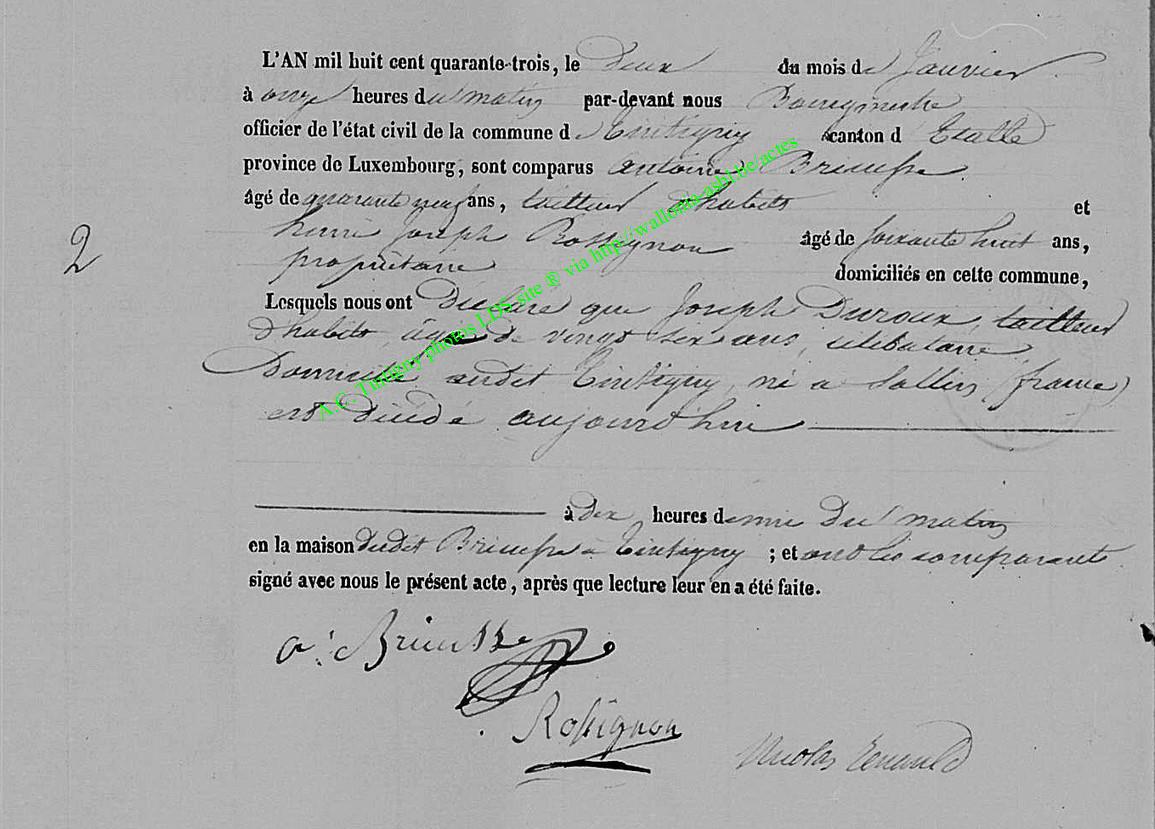 L'AN mil huit cent quarante-trois, le deux du mois de Janvier
à onze heures du matin par-devant nous Bourgmestre
officier de l'état civil de la commune de Tintigny canton d'Etalle
province de Luxembourg, sont comparus antoine
âgé de quarante neuf ans, tailleur d'habits et
henri Joseph Rossignon âgé de soixante huit ans,
2
propriétaire domiciliés en cette commune,
Lesquels nous ont déclaré que Joseph Duroux, tailleur
d'habits agé de vingt six ans, celibataire,
Domicilié audit Tintigny, né a Sallin (france)
est décédé aujourd'hui
à dix heures demie du matin
en la maison dudit à Tintigny ; et ont les comparants
signé avec nous le présent acte, après que lecture leur en a été faite.
a:
Rossignon
Nicolas
A.C. Tintigny photos LDS site ® via http://wallonia-asbl.be/actes